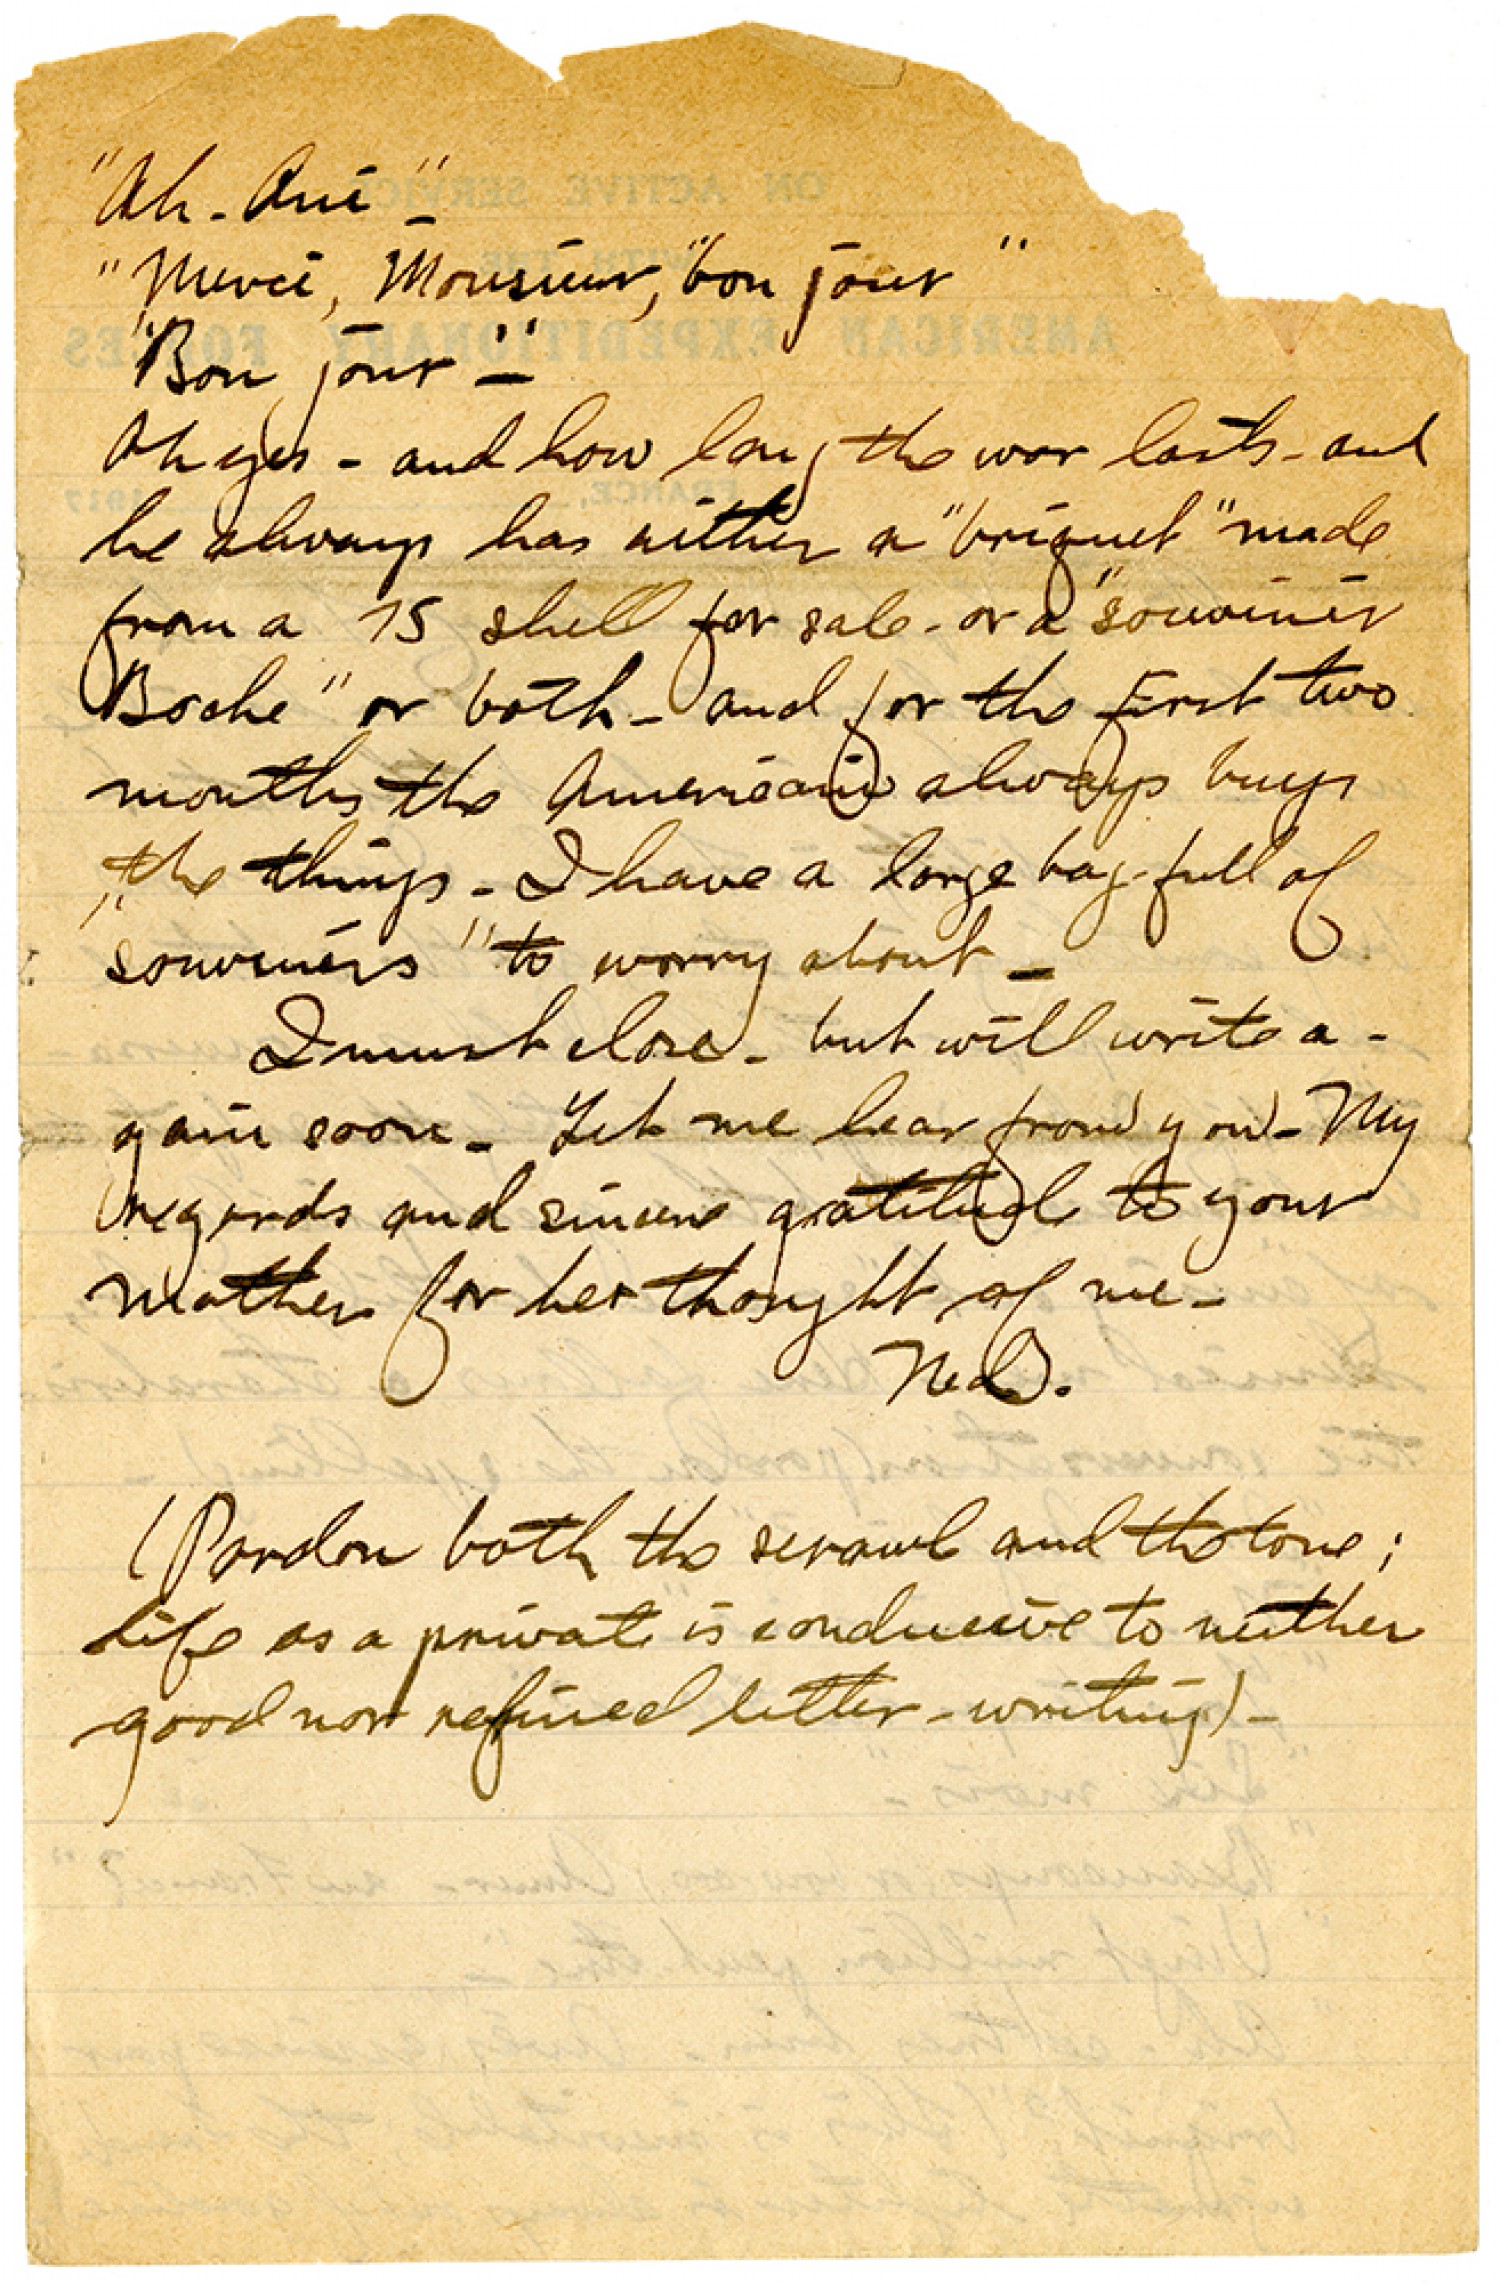 "Ah - Oui" -
"Merci, Monsieur, "bon jour"
"Bon jour" -
Ah yes - and how long the war lasts - and
he always has either a "briquet" made
from a 75 shell for sale - or a "souvinir
Boche" or both - and for the first two
months the American always buys
the things - I have a large bag-full of
"souvenirs" to worry about -
I must close - but will write a-
gain soon - Let me hear from you - My
regards and sincere gratitude to your
mother for her thought of me -
Ned.
(Pardon both the scrawl and the tone;
life as a private is conducive to neither
good nor refined letter-writing) -